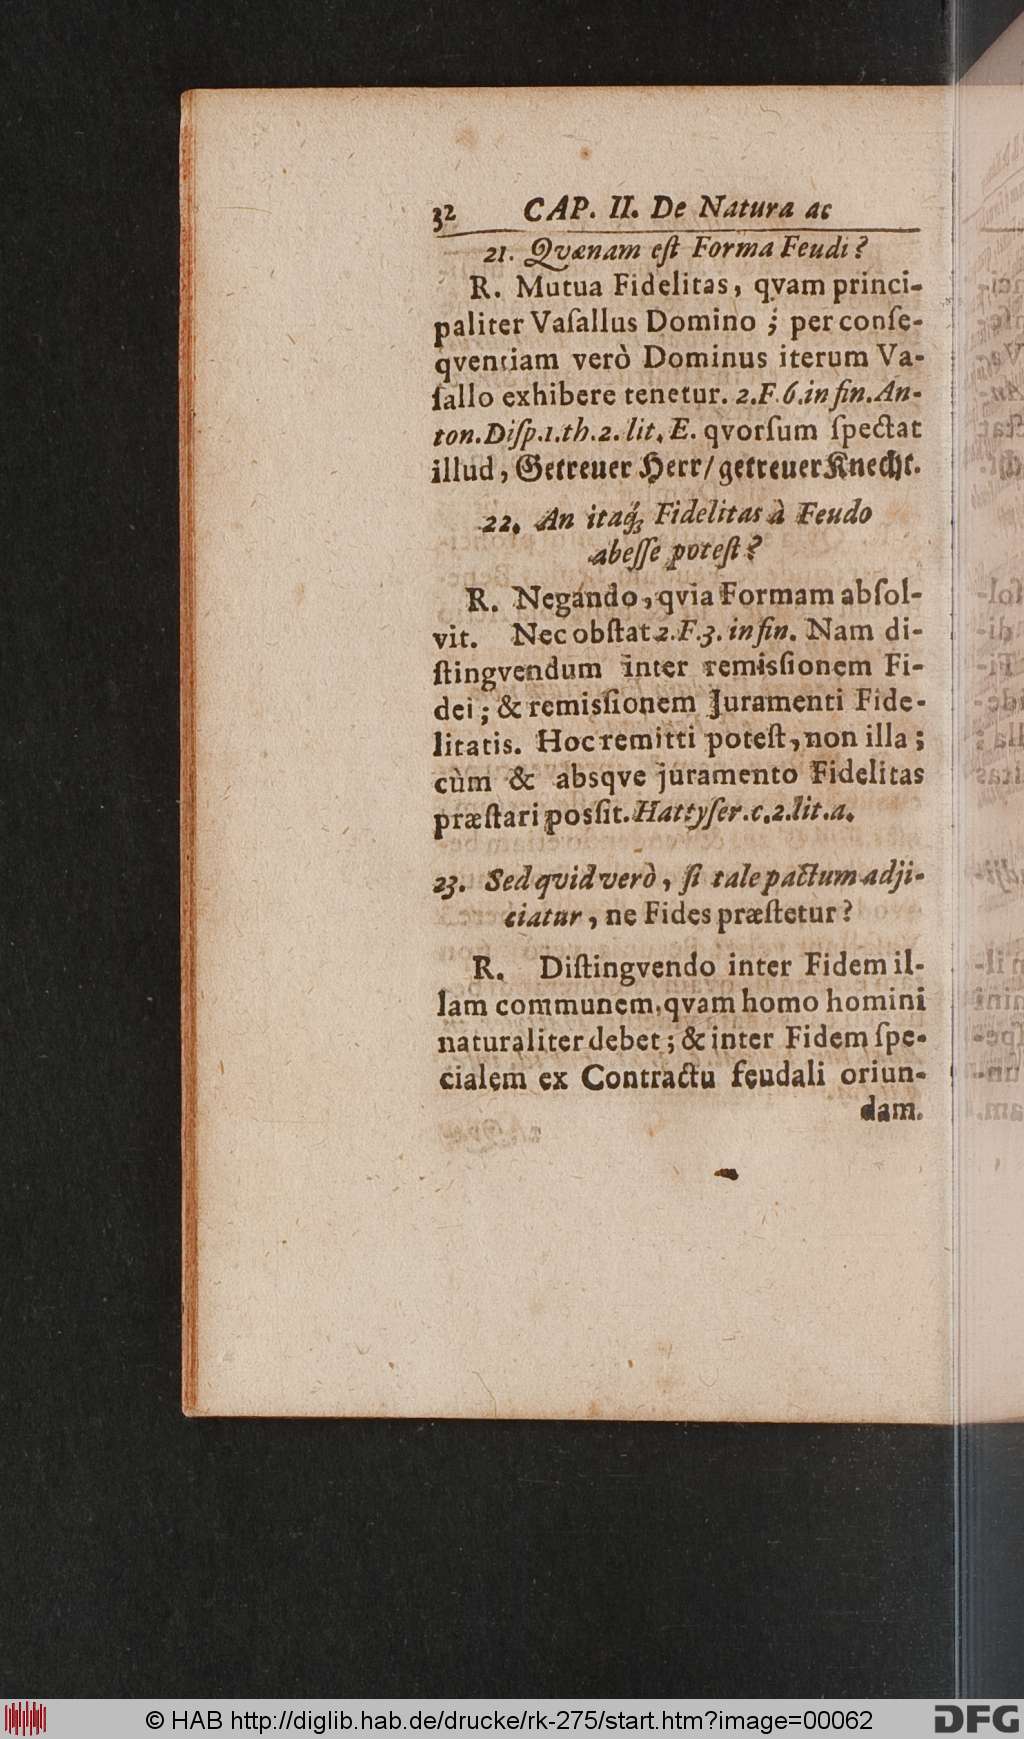 32 CAP. II. De Natura ac
21. Qvænam eſt Forma Feudi?
R. Mutua Fidelitas, qvam princi-
paliter Vaſallus Domino; per conſe-
qventiam verò Dominus iterum Va-
ſallo exhibere tenetur. 2.F.6.in fin. An-
ton. Diſp.1.th.2. lit. E. qvorſum ſpectat
illud, Getreuer Herr/ getreuer Knecht.
22. An itaq́; Fidelitas à Feudo
abeſſe poteſt?
R. Negando, qvia Formam abſol-
vit. Nec obſtat 2.F.3. in fin. Nam di-
ſtingvendum inter remisſionem Fi-
dei; & remisſionem Juramenti Fide-
litatis. Hoc remitti poteſt, non illa;
cùm & absqve juramento Fidelitas
præſtari posſit. Hattyſer.c.2.lit.a.
23. Sed qvid verò, ſi tale pactum adji-
ciatur, ne Fides præſtetur?
R. Diſtingvendo inter Fidem il-
lam communem, qvam homo homini
naturaliter debet; & inter Fidem ſpe-
cialem ex Contractu feudali oriun-
dam.
© HAB http://diglib.hab.de/drucke/rk-275/start.htm?image=00062
DFG